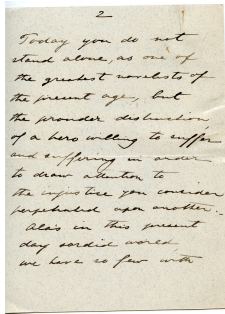 2
Today you do not
stand alone, as one of
the greatest novelists of
the present age, but
the prouder distinction
of a hero willing to suffer
and suffering in order
to draw attention to
the injustice you consider
perpetrated upon another.
Alas in this present
day sordid world,
we have so few with